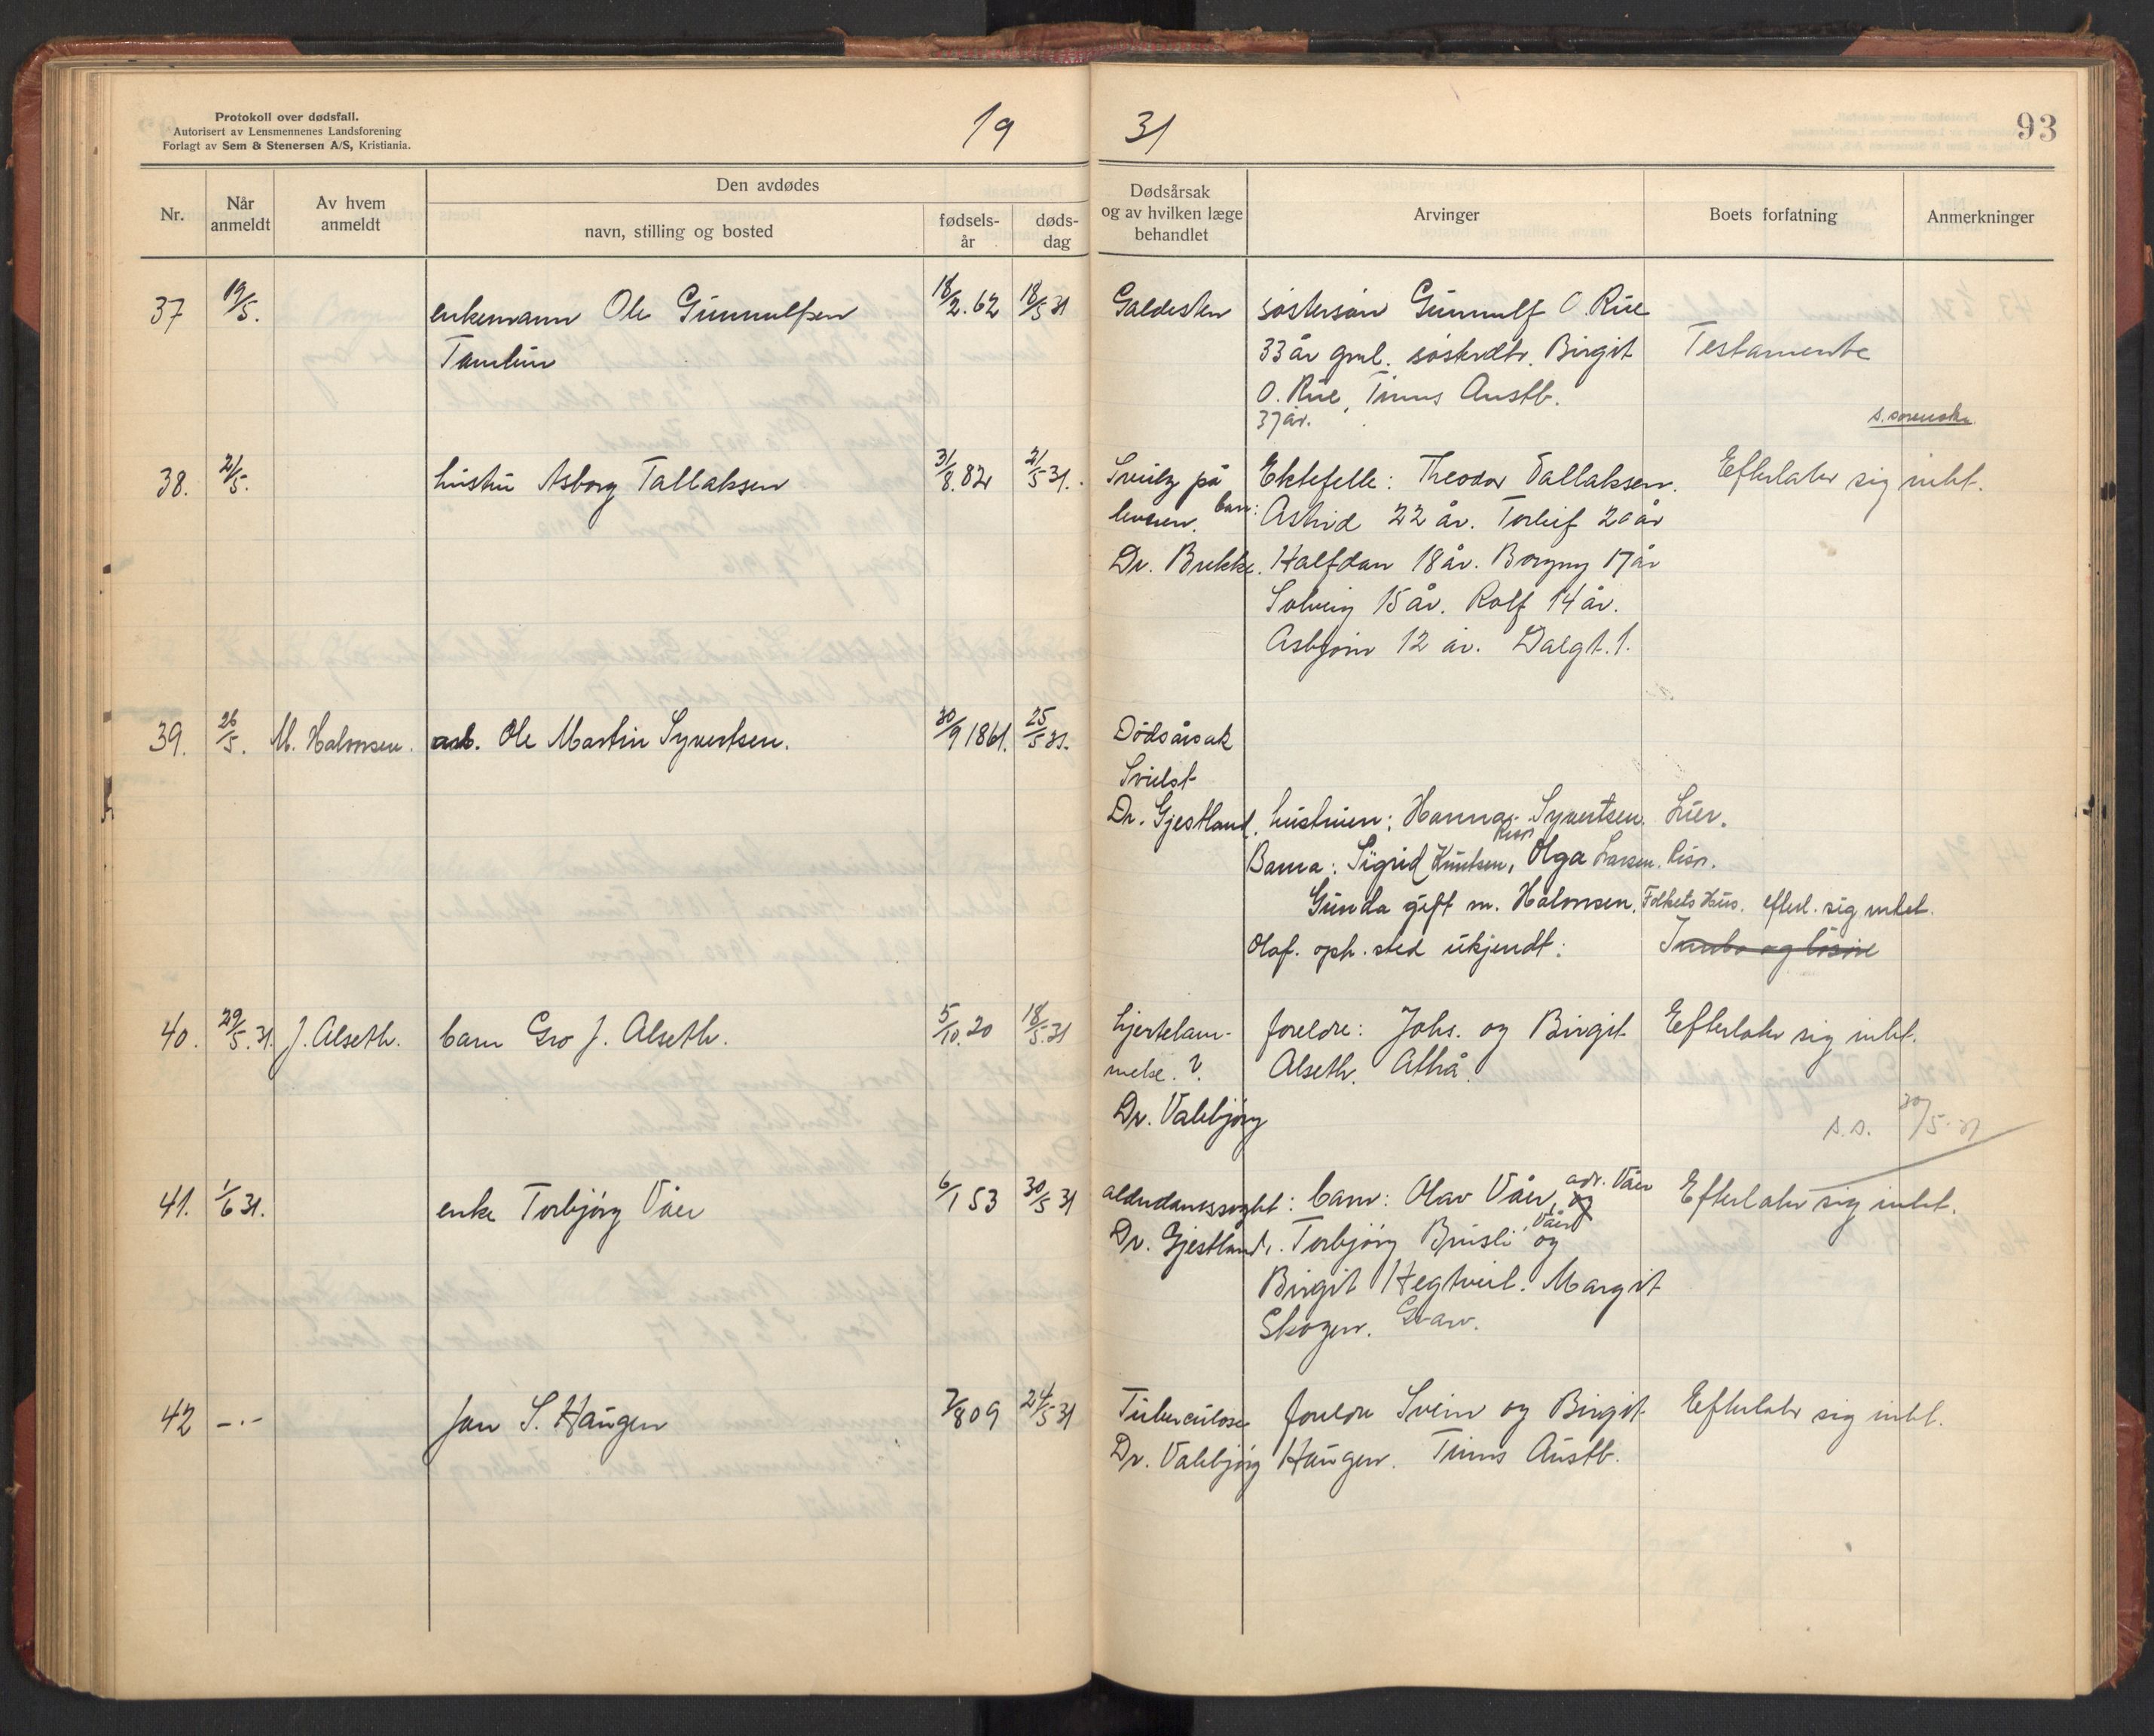 Protokoll over dødsfall.
Autorisert av Lensmennenes Landsforening
Forlagt av Sem & Stenersen A/S, Kristiania.
19 31
93
Nr.
Når anmeldt
Av hvem anmeldt
Den avdødes
navn, stilling og bosted
fødsels-år
døds-dag
Dødsårsak og av hvilken læge behandlet
Arvinger
Boets forfatning
Anmerkninger
37 19/5. enkemann Ole Gunnulfsen 18/2.62 18/5 31 Galdesten søstersøn Gunnulf O. Rue
33 år gml. søsterdtr. Birgit Testamente
O. Rue, Tinns Austb.
37 år.
s. sorenskr.
38. 21/5. hustru Asborg Tallaksen 31/8.82 21/5 31. Svulz på Ektefelle: Theodor Tallaksen. Efterlater sig intet.
leveren. barn: Astrid 22 år. Torleif 20 år
Dr. Brekke. Halfdan 18 år. Borgny 17 år
Solveig 15 år. Rolf 14 år.
Asbjørn 12 år. Dalgt. 1.
39. 26/5. M. Halvorsen. arb. Ole Martin Syvertsen. 30/9 1861. 25/5 31. Dödsårsak
Svulst
Dr. Gjestland. hustruen: Hanna Syvertsen. Lier.
Barna: Sigrid Knutsen, Risør Olga Larsen. Risør.
Gunda gift m. Halvorsen. Folkets Hus. efterl. sig intet.
Olaf. oph. sted ukjendt: Innbo og løsøre
40. 29/5.31. J. Alseth. barn Gro J. Alseth. 5/10.20 18/5.31 hjertelam- foreldre: Johs. og Birgit Efterlater sig intet.
melse. ?. Alseth. Atrå.
Dr. Valebjørg
s.s. 30/5-31
41. 1/6 31. enke Torbjørg Våer 6/1 53 30/5 31 alderdomssvakht: barn: Olav Våer, adr. Våer og Efterlater sig intet.
Dr. Gjestland. Torbjørg Brusli Våer og
Birgit Hegtveit. Margit
Skogen.
42 -"- Jon S. Haugen 7/8 09 24/5 31 Tuberculose foreldre Svein og Birgit Efterlater sig intet.
Dr. Valebjørg Haugen. Tinns Austb.